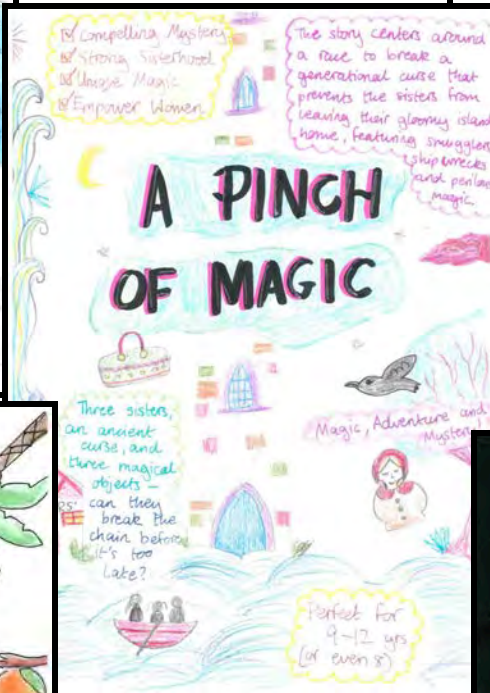 Compelling Mystery
Strong Sisterhood
Unique Magic
Empower Women
The story centers around
a race to break a
generational curse that
prevents the sisters from
leaving their gloomy island
home, featuring smugglers
shipwrecks
and perilous
magic.
A PINCH
OF MAGIC
Three sisters,
an ancient
curse, and
three magical
objects –
can they
break the
chain before
it's too
late?
Magic, Adventure and
Mystery
Perfect for
9-12 yrs
(or even 8)